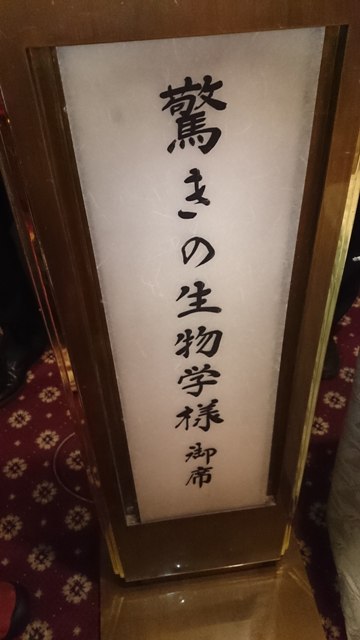 驚きの生物学様御席